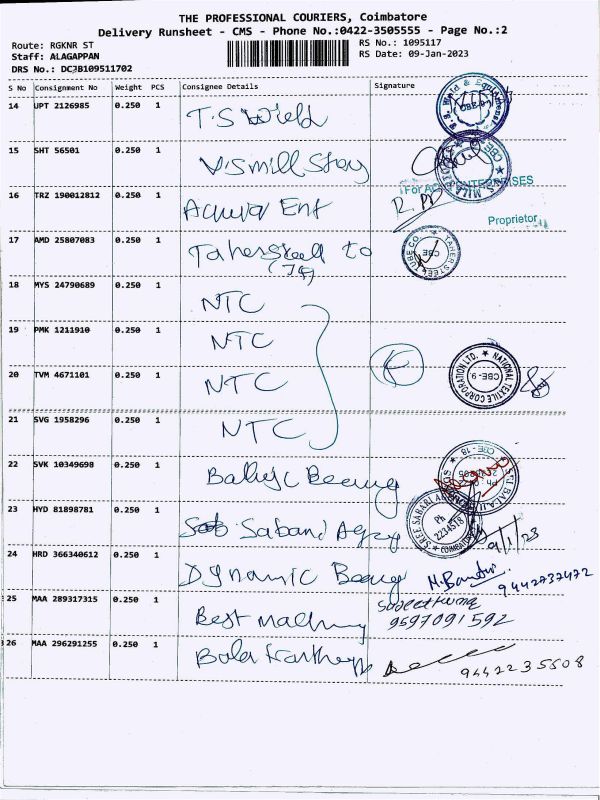 THE PROFESSIONAL COURIERS, Coimbatore
Delivery Runsheet - CMS - Phone No.:0422-3505555 - Page No.:2
Route: RGKNR ST
RS No.: 1095117
Staff: ALAGAPPAN
RS Date: 09-Jan-2023
DRS No.: DCJB109511702
S No Consignment No Weight PCS Consignee Details Signature
14 UPT 2126985 0.250 1 T.S Weld
15 SHT 56501 0.250 1
For ENTERPRISES
16 TRZ 190012812 0.250 1 Ent
Proprietor
17 AMD 25807083 0.250 1 Taher Steel
TAHER STEEL TUBE CO. CBE
18 MYS 24790689 0.250 1 NTC
19 PMK 1211910 0.250 1 NTC
20 TVM 4671101 0.250 1 NTC
NATIONAL TEXTILE CORPORATION LTD. CBE-9
21 SVG 1958296 0.250 1 NTC
22 SVK 10349698 0.250 1
SRI BALAJI CBE-18
23 HYD 81898781 0.250 1 Sabari
SREE SABARI Ph 2234518 COIMBATORE
9/1/23
24 HRD 366340612 0.250 1 Dynamic
9442737472
25 MAA 289317315 0.250 1 Best
9597091592
26 MAA 296291255 0.250 1 Bala
9442235508